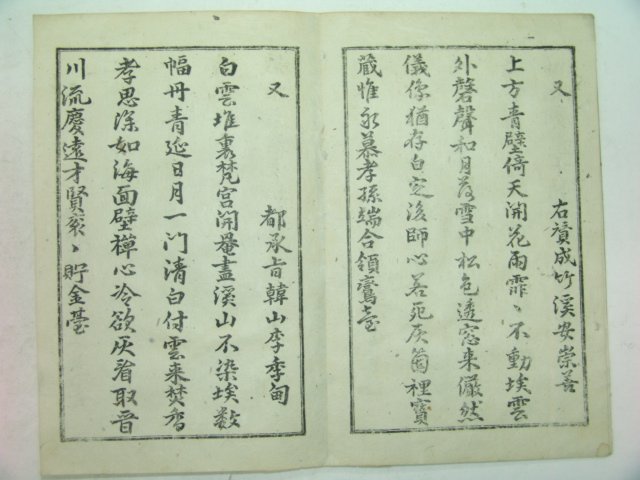 又
右贊成竹溪安崇善
上方青壁倚天開花雨霏〻不動埃雲
外磬聲和月落雪中松色透窓来儼然
儀像猶存白㝎後師心若死灰箇裡寶
藏惟永慕孝孫端合領鸞臺
又
都承旨韓山李季甸
白雲堆裏梵宮開菴盡溪山不染埃數
幅丹青延日月一门清白付雲来焚香
孝思深如海面壁禅心冷欲灰看取晋
川流慶遠才賢䆮〻貯金臺